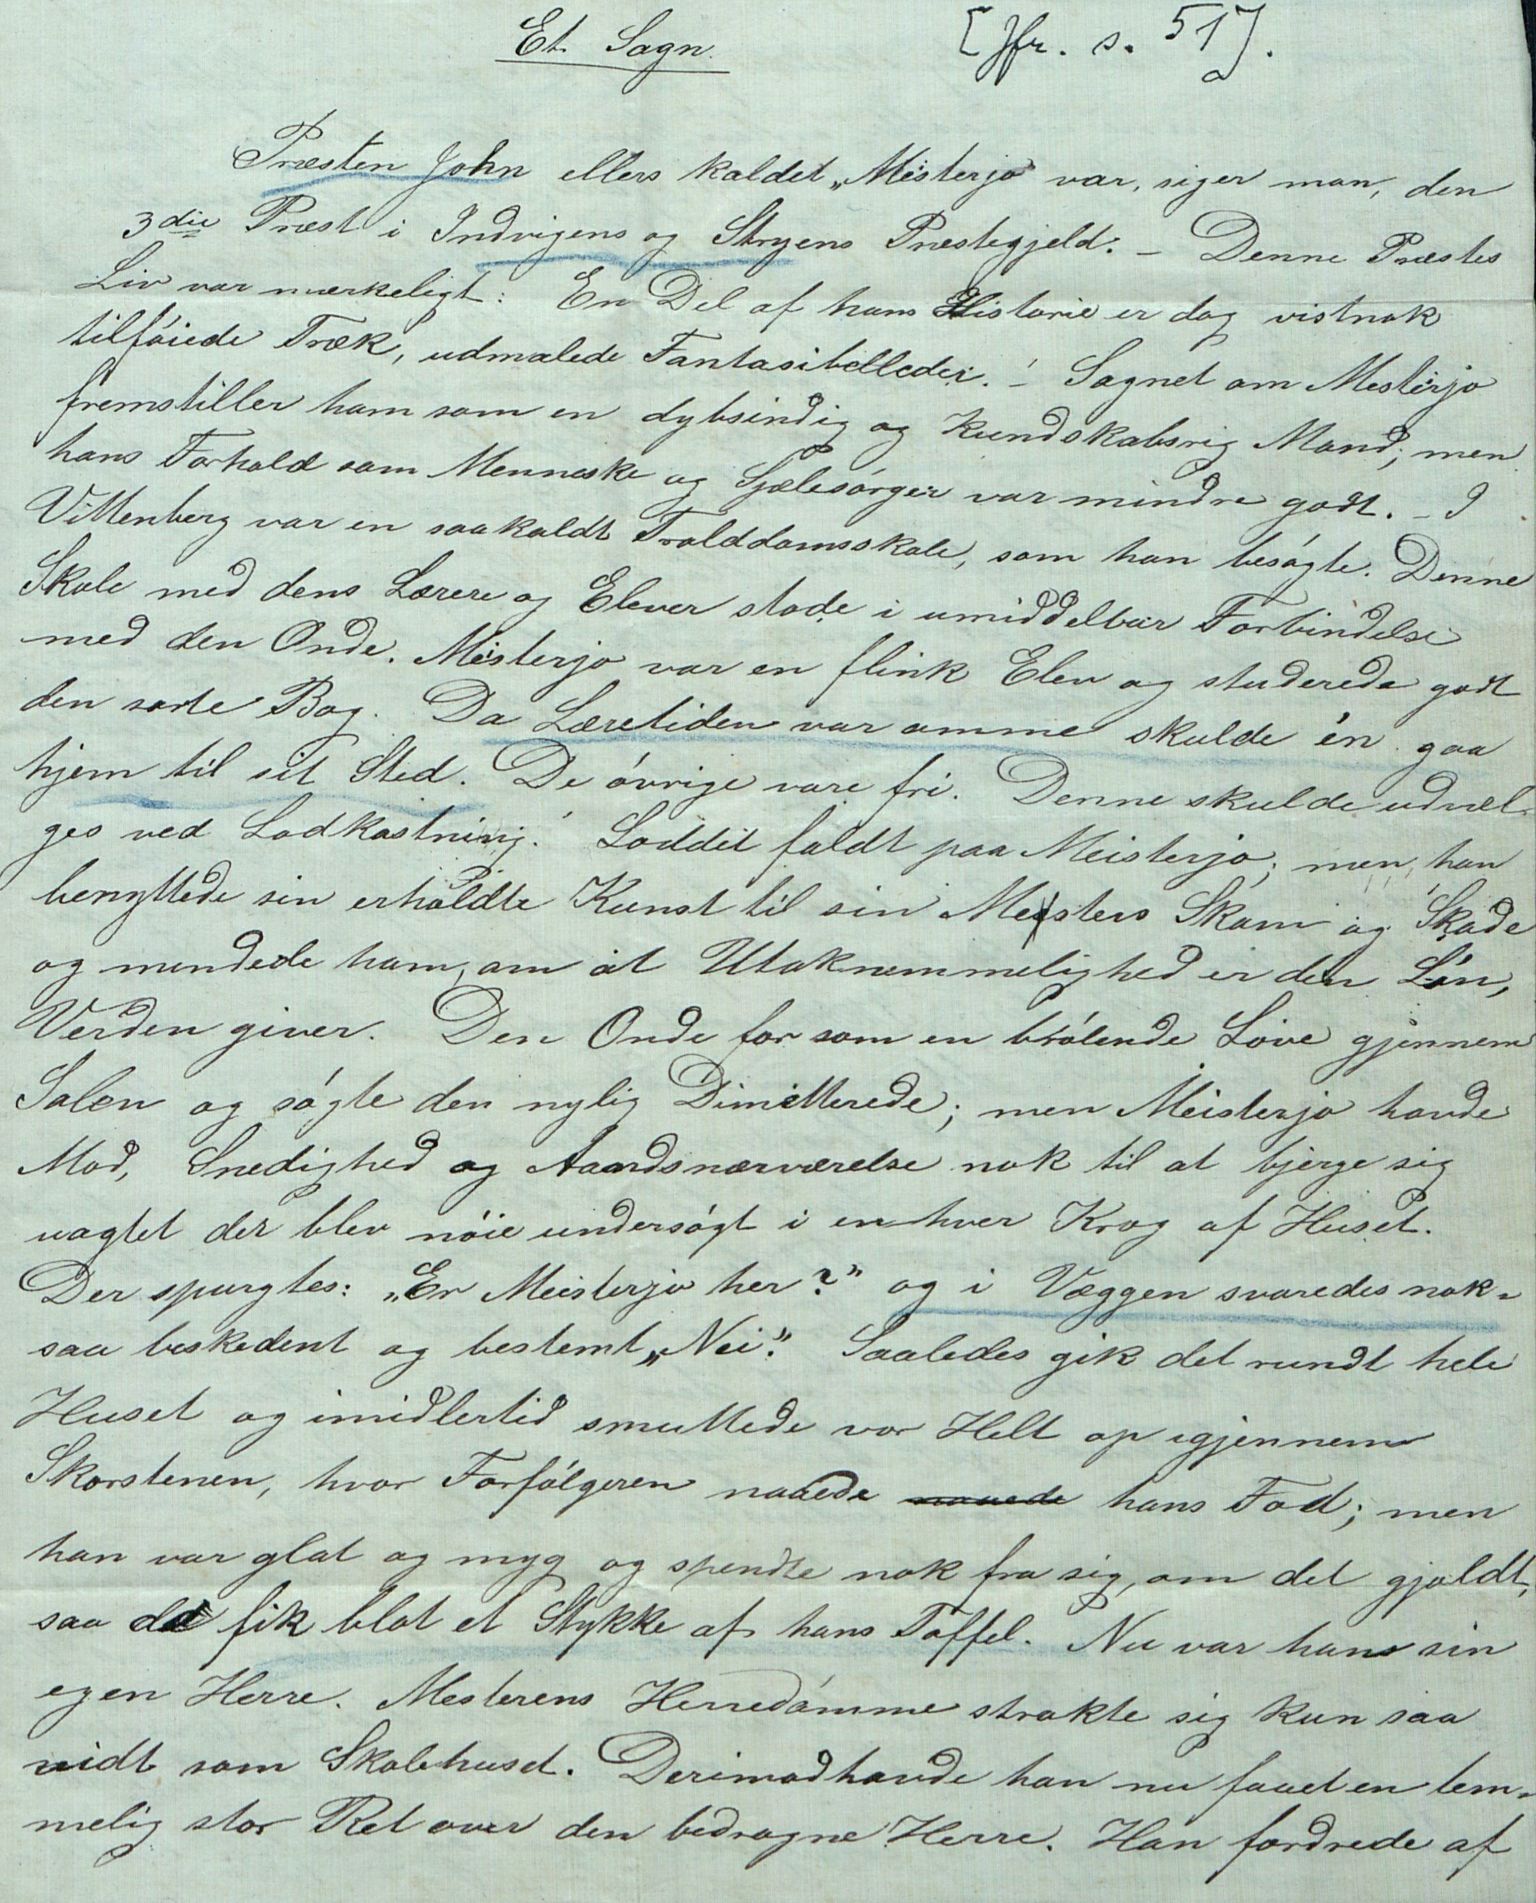 Et Sagn. [Jfr. s. 51].
Præsten John ellers kaldet „Meisterjo" var, siger man, den
3die Præst i Indvigens og Stryens Præstegjeld. – Denne Præstes
Liv var mærkeligt: En Del af hans Historie er dog vistnok
tilføiede Træk, udmalede Fantasibilleder. – Sagnet om Mesterjo
fremstiller ham som en dybsindig og kundskabsrig Mand; men
hans Forhold som Menneske og Sjælesørger var mindre godt. – I
Vittenberg var en saakaldt Trolddomsskole, som han besøgte. Denne
Skole med dens Lærere og Elever stode i umiddelbar Forbindelse
med den Onde. Meisterjo var en flink Elev og studerede godt
den sorte Bog. Da Læretiden var omme skulde én gaa
hjem til sit Sted. De øvrige vare fri. Denne skulde udvæl-
ges ved Lodkastning. Loddet faldt paa Meisterjo; men han
benyttede sin erholdte Kunst til sin Mesters Skam og Skade
og mindede ham om at Utaknemmelighed er den Løn,
Verden giver. Den Onde for som en brølende Løve gjennem
Salen og søgte den nylig Dimitterede; men Meisterjo havde
Mod, Snedighed og Aandsnærværelse nok til at bjerge sig
uagtet der blev nøie undersøgt i enhver Krog af Huset.
Der spurgtes: „Er Meisterjo her?" og i Væggen svaredes nok-
saa beskedent og bestemt „Nei". Saaledes gik det rundt hele
Huset og imidlertid smuttede vor Helt op igjennem
Skorstenen, hvor Forfølgeren naaede naaede hans Fod; men
han var glat og myg og spendte nok fra sig, om det gjaldt,
saa de fik blot et Stykke af hans Toffel. Nu var han sin
egen Herre. Mesterens Herredømme strakte sig kun saa
vidt som Skolehuset. Derimod havde han nu faaet en tem-
melig stor Ret over den bedragne Herre. Han fordrede af